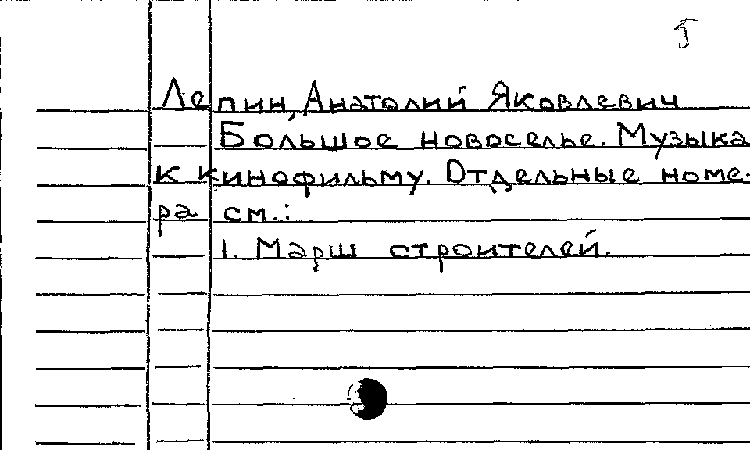 Лепин, Анатолий Яковлевич
Большое новоселье. Музыка
к кинофильму. Отдельные номе-
ра см.:
1. Марш строителей.